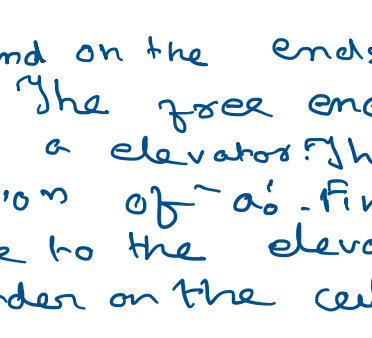 nd on the ends
The free end
a elevator. Th
ion of a. Fin
e to the eleva
nder on the cei